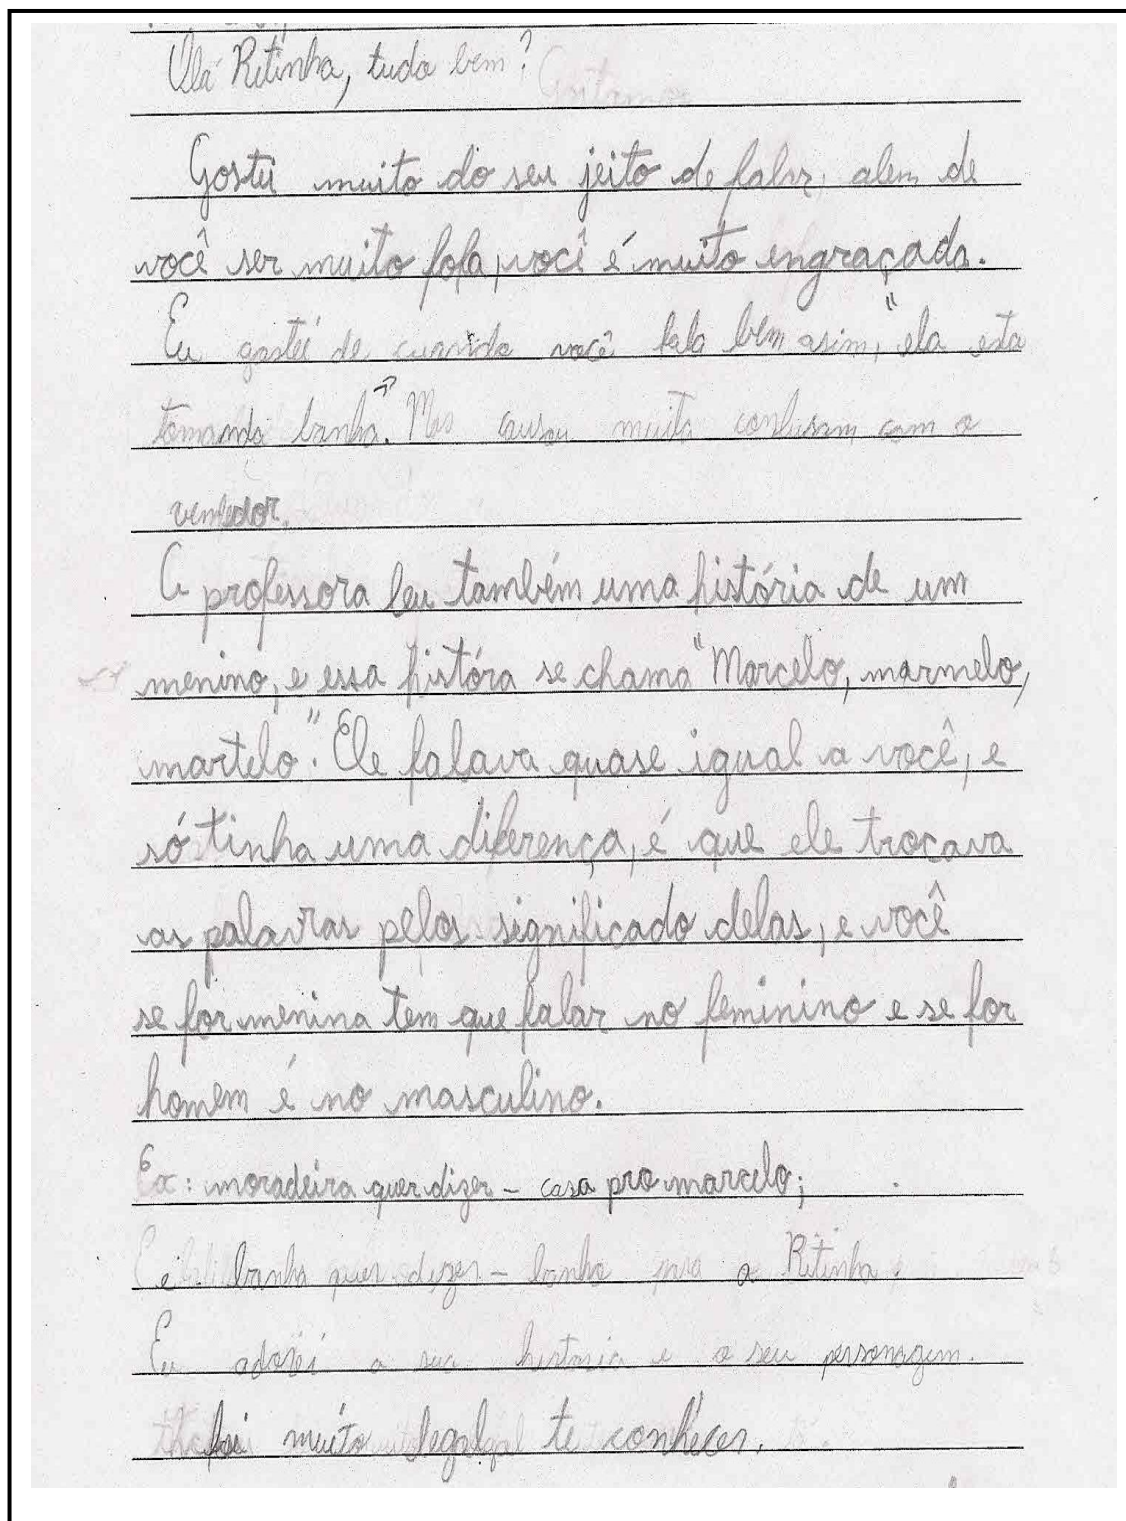 Olá Ritinha, tudo bem?
Gostei muito do seu jeito de falar, alem de
você ser muito fofa, você é muito engraçada.
Eu gostei de cuando você fala bem asim, "ela esta
tomando banha". Mas causou muita confusam com o
vendedor.
A professora leu também uma história de um
menino, e essa históra se chama "Marcelo, marmelo,
martelo". Ele falava quase igual a você, e
só tinha uma diferença, é que ele trocava
as palavras pelos significado delas, e você
se for menina tem que falar no feminino e se for
homem é no masculino.
Ex: moradeira quer dizer - casa pro marcelo;
e banha quer dizer - banho pra a Ritinha.
Eu adorei a sua historia e o seu personagem.
foi muito legal te conhecer.